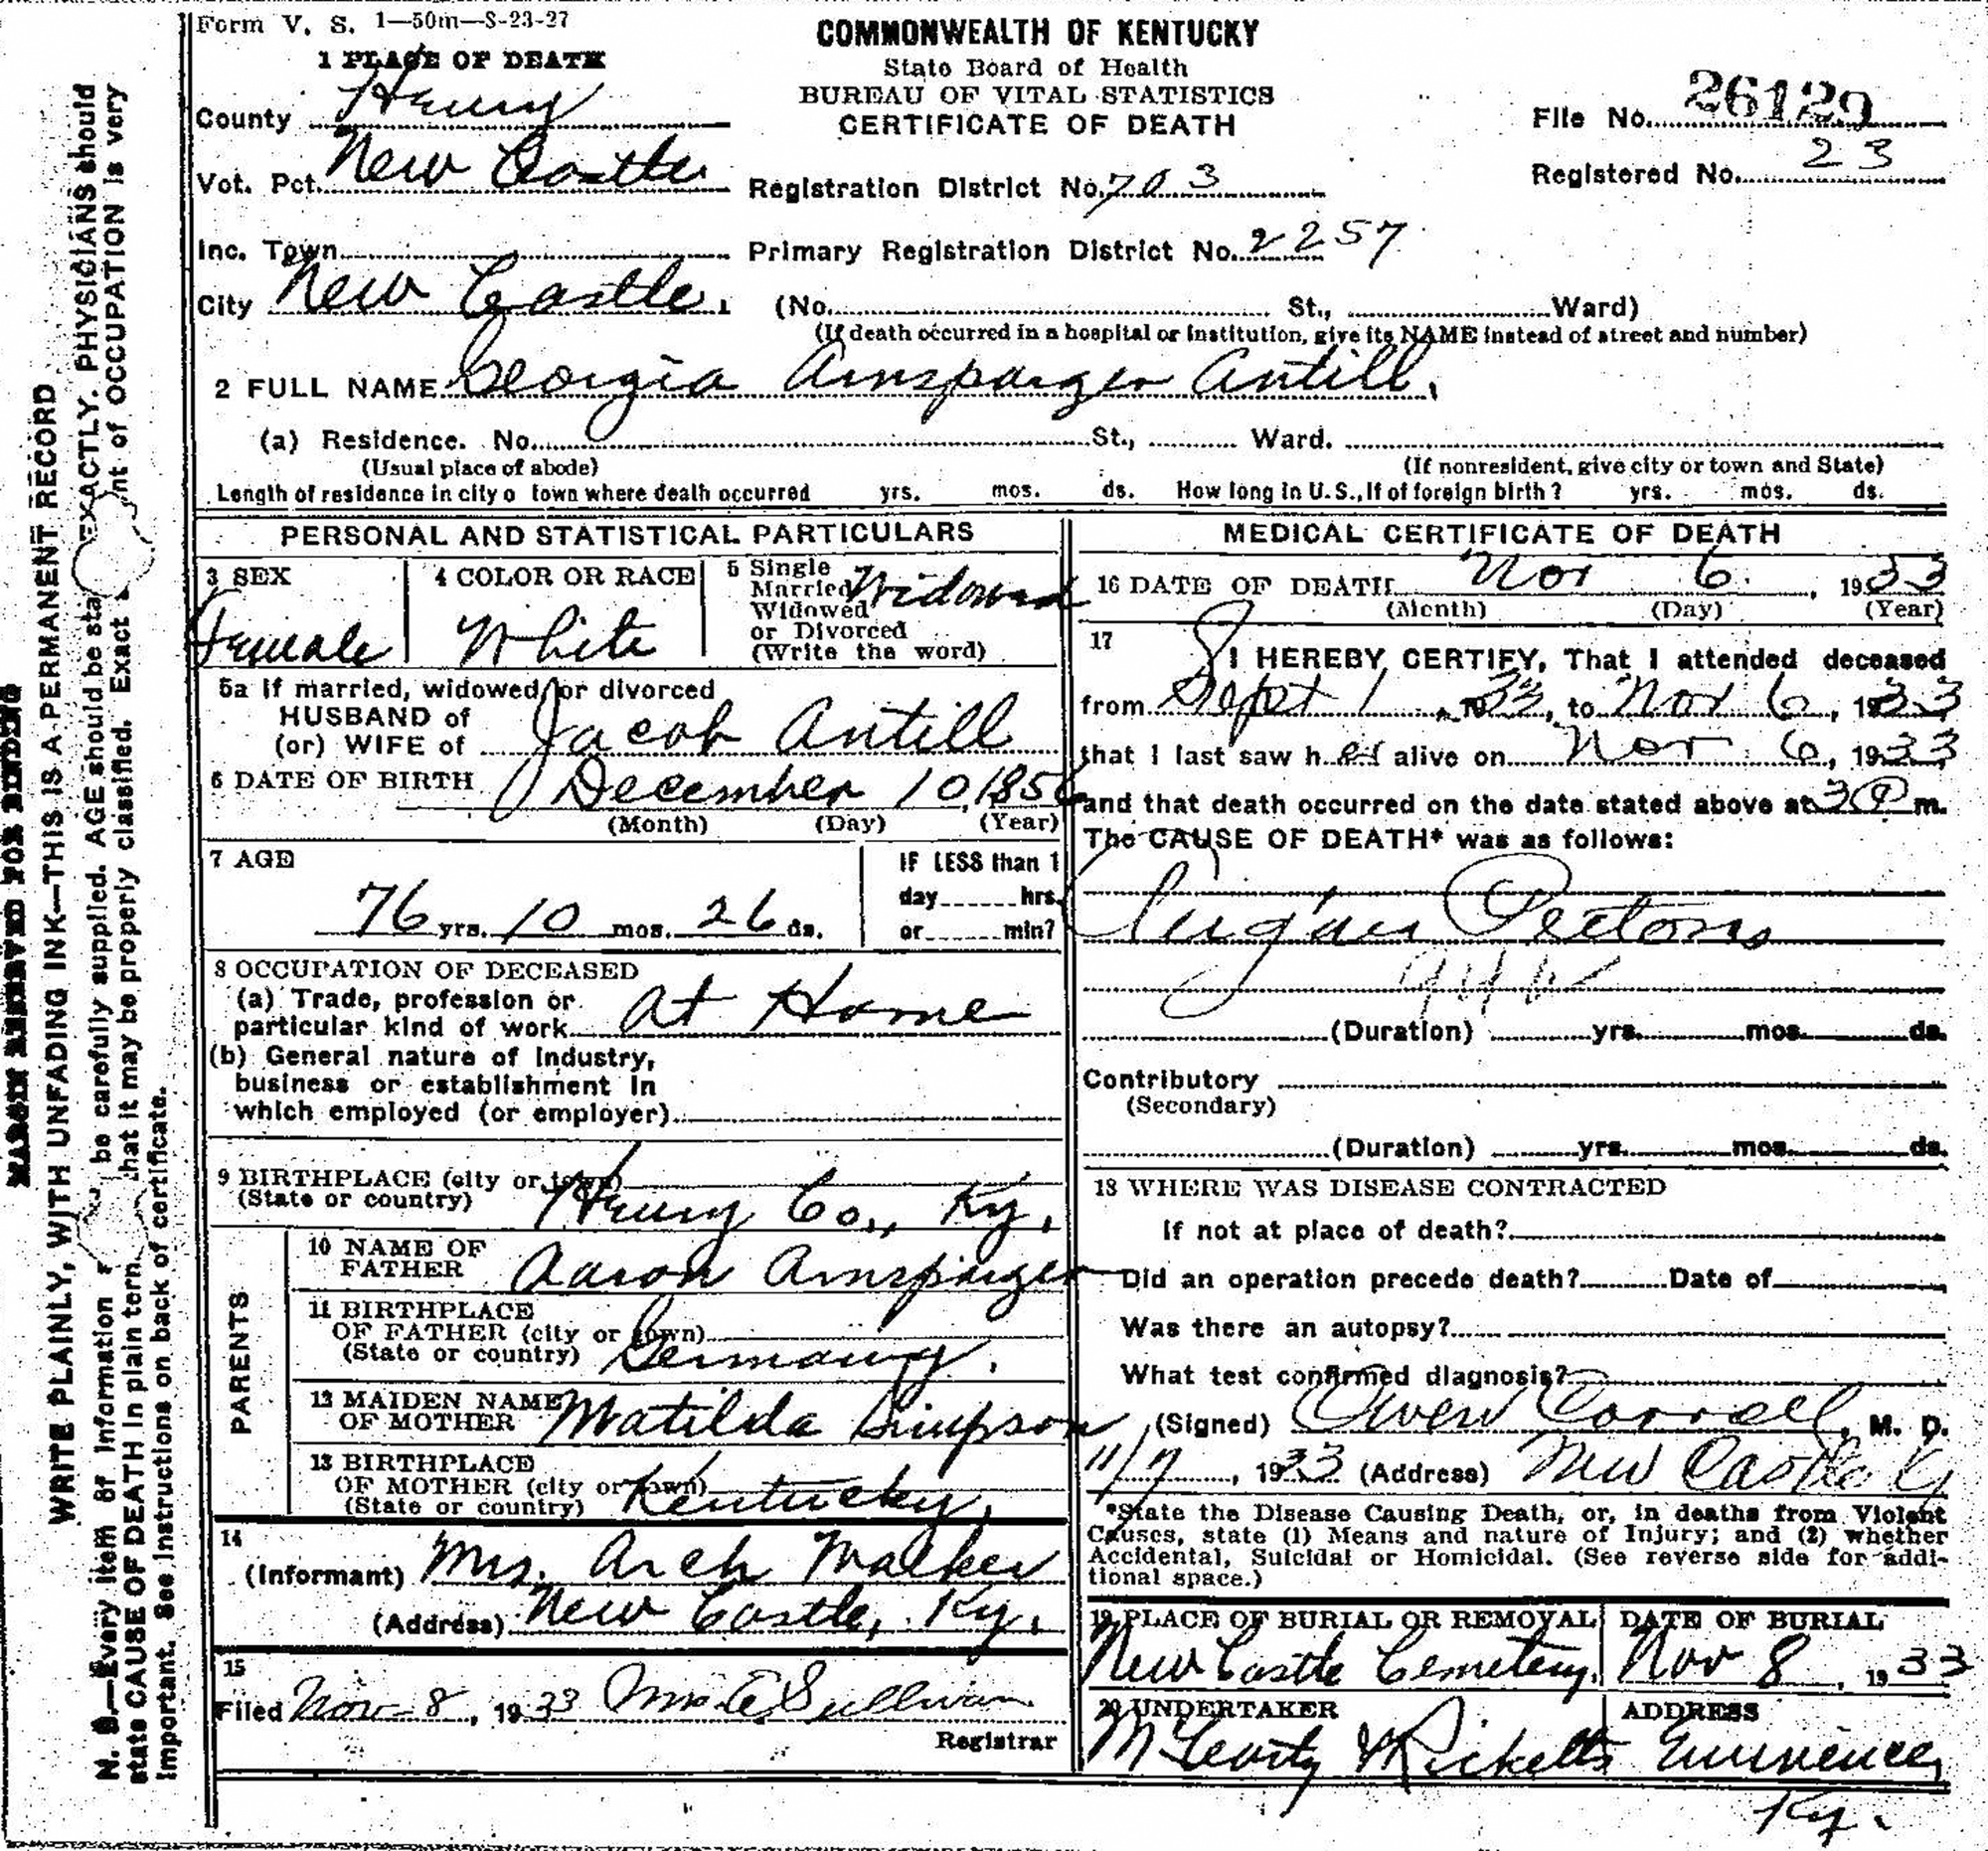 Form V. S. 1—50m—8-23-27
1 PLACE OF DEATH
County Henry
Vot. Pct. New Castle
Inc. Town
City New Castle.
COMMONWEALTH OF KENTUCKY
State Board of Health
BUREAU OF VITAL STATISTICS
CERTIFICATE OF DEATH
File No. 26129
Registered No. 23
Registration District No. 703
Primary Registration District No. 2257
(No. St., Ward)
(If death occurred in a hospital or institution, give its NAME instead of street and number)
2 FULL NAME Georgia Arnsparger Antill.
(a) Residence. No. St., Ward.
(Usual place of abode) (If nonresident, give city or town and State)
Length of residence in city o town where death occurred yrs. mos. ds. How long in U.S., if of foreign birth? yrs. mos. ds.
PERSONAL AND STATISTICAL PARTICULARS
3 SEX
Female
4 COLOR OR RACE
White
5 Single
Married
Widowed
or Divorced
(Write the word)
Widowed
5a If married, widowed, or divorced
HUSBAND of
(or) WIFE of Jacob Antill
6 DATE OF BIRTH December 10, 1856
(Month) (Day) (Year)
7 AGE
76 yrs. 10 mos. 26 ds.
IF LESS than 1
day hrs.
or min?
8 OCCUPATION OF DECEASED
(a) Trade, profession or
particular kind of work At Home
(b) General nature of Industry,
business or establishment in
which employed (or employer)
9 BIRTHPLACE (city or town)
(State or country) Henry Co., Ky.
PARENTS
10 NAME OF
FATHER Aaron Arnsparger
11 BIRTHPLACE
OF FATHER (city or town)
(State or country) Germany.
12 MAIDEN NAME
OF MOTHER Matilda Simpson
13 BIRTHPLACE
OF MOTHER (city or town)
(State or country) Kentucky.
14
(Informant) Mrs. Arch Walker
(Address) New Castle, Ky.
15
Filed Nov 8, 1933 Mrs. Sullivan
Registrar
MEDICAL CERTIFICATE OF DEATH
16 DATE OF DEATH Nov 6, 1933
(Month) (Day) (Year)
17
I HEREBY CERTIFY, That I attended deceased
from Sept 1, 1933, to Nov 6, 1933
that I last saw her alive on Nov 6, 1933
and that death occurred on the date stated above at 3 P m.
The CAUSE OF DEATH* was as follows:
Angina Pectoris
(Duration) yrs. mos. ds.
Contributory
(Secondary)
(Duration) yrs. mos. ds.
18 WHERE WAS DISEASE CONTRACTED
If not at place of death?
Did an operation precede death? Date of
Was there an autopsy?
What test confirmed diagnosis?
(Signed) Owen Carroll, M. D.
11/7, 1933 (Address) New Castle Ky
*State the Disease Causing Death, or, in deaths from Violent
Causes, state (1) Means and nature of Injury; and (2) whether
Accidental, Suicidal or Homicidal. (See reverse side for addi-
tional space.)
19 PLACE OF BURIAL OR REMOVAL
New Castle Cemetery.
DATE OF BURIAL
Nov 8, 1933
20 UNDERTAKER
McCarty & Ricketts
ADDRESS
Eminence,
Ky.
MARGIN RESERVED FOR BINDING
WRITE PLAINLY, WITH UNFADING INK—THIS IS A PERMANENT RECORD
N. B.—Every item of information be carefully supplied. AGE should be sta EXACTLY. PHYSICIANS should
state CAUSE OF DEATH in plain term that it may be properly classified. Exact nt of OCCUPATION is very
important. See instructions on back of certificate.